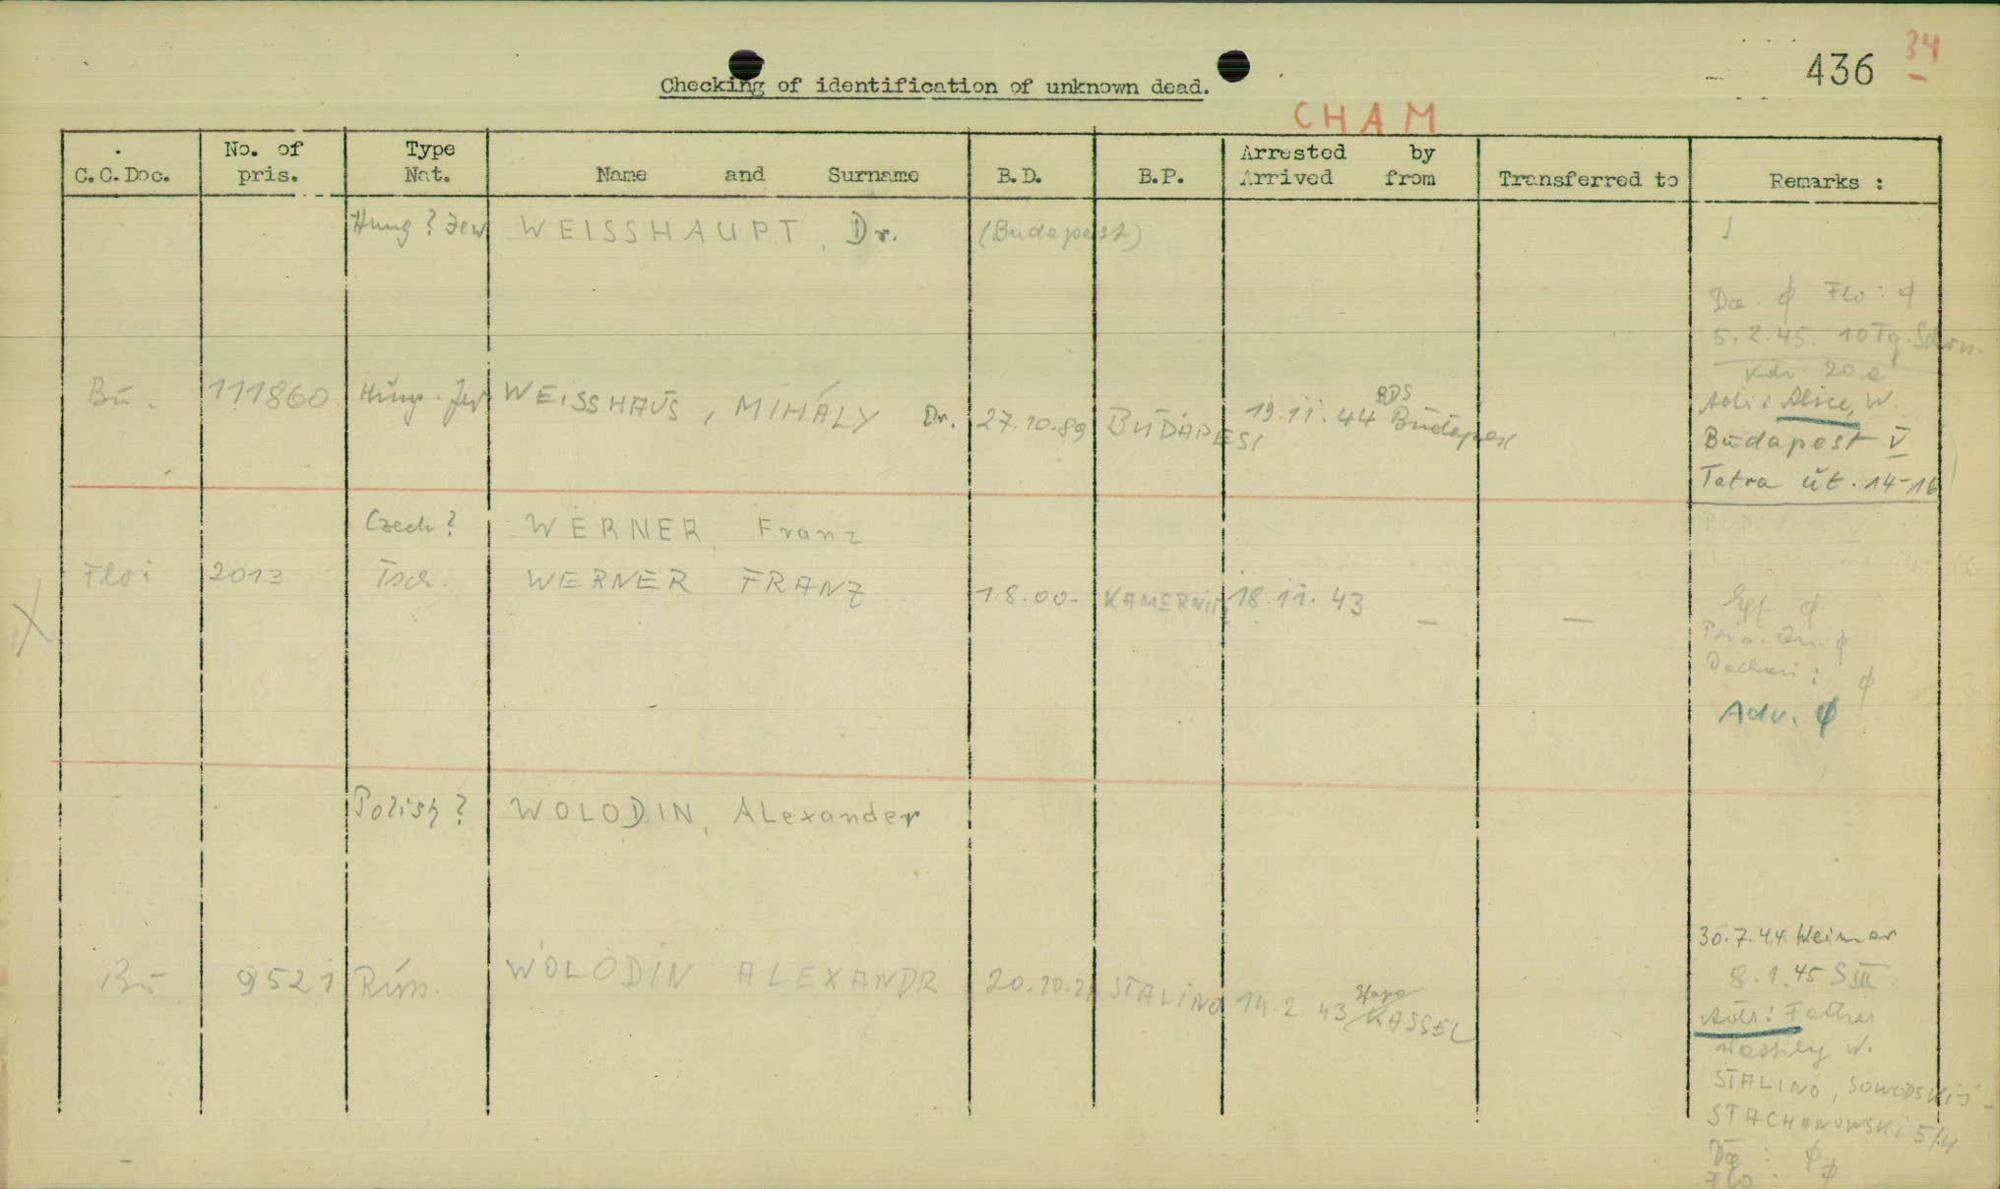 436 34
Checking of identification of unknown dead.
CHAM
C.C.Doc. No. of pris. Type Nat. Name and Surname B.D. B.P. Arrested by Arrived from Transferred to Remarks :
Hung? Jew WEISSHAUPT, Dr. (Budapest)
Da. ϕ Flo: ϕ
5.2.45. 10 Tg.
20
Bu. 111860 Hung. Jew WEISSHAUS, MIHÁLY Dr. 27.10.89 BUDAPEST 19.11.44 BDS Budapest
Adr: Alice, W.
Budapest V
Tatra út. 14-16
Czech? WERNER, Franz
Flo: 2013 Tsch. WERNER FRANZ 1.8.00- 18.11.43 — —
ϕ
ϕ
Dachau: ϕ
Adv. ϕ
Polish? WOLODIN, Alexander
30.7.44 Weimar
8.1.45 S III.
Bu 9521 Russ. WOLODIN ALEXANDR STALINO 14.2.43 Stapo KASSEL
Adr: Father
Wassily W.
STALINO, SOWODSKIJ-
STACHANOWSKI 5/4
Da : ϕ
Flo : ϕ